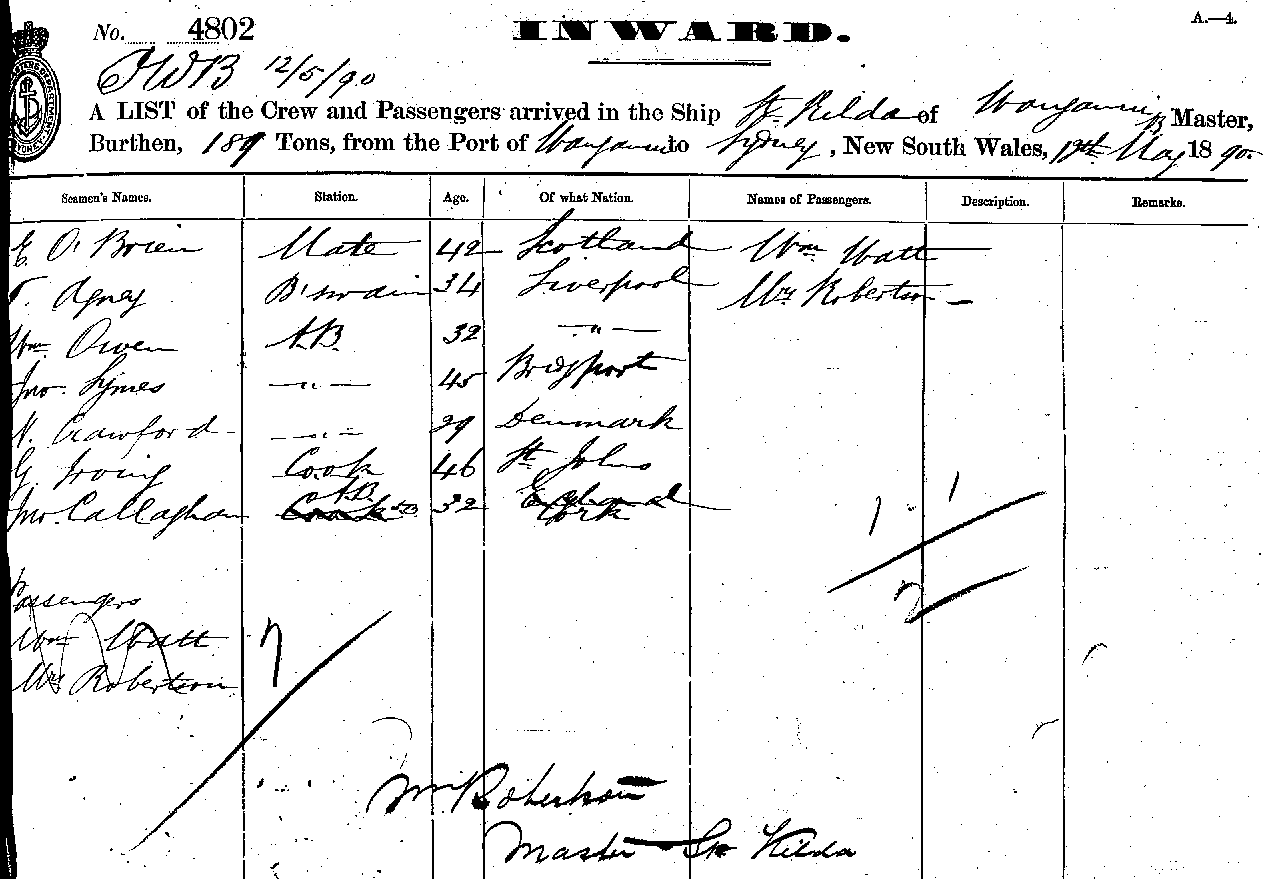 A.—4.
No. 4802 INWARD.
JWB 12/5/90
A LIST of the Crew and Passengers arrived in the Ship St. Kilda of Wanganui Master,
Burthen, 189 Tons, from the Port of Wanganui to Sydney, New South Wales, 12th May 1890.
Seamen's Names. Station. Age. Of what Nation. Names of Passengers. Description. Remarks.
E. O'Brien Mate 42 Scotland Wm Watt
T. Agney B'swain 34 Liverpool Mrs Robertson
Wm Owen A.B. 32 —"—
Jno. Symes —"— 45 Bridgport
N. Crawford —"— 29 Denmark
G. Irving Cook 46 St Johns
Jno. Callaghan A.B. 32 England Cork
1 1
2
Passengers
Wm Watt 7
Mrs Robertson
Wm Robertson
Master St Kilda